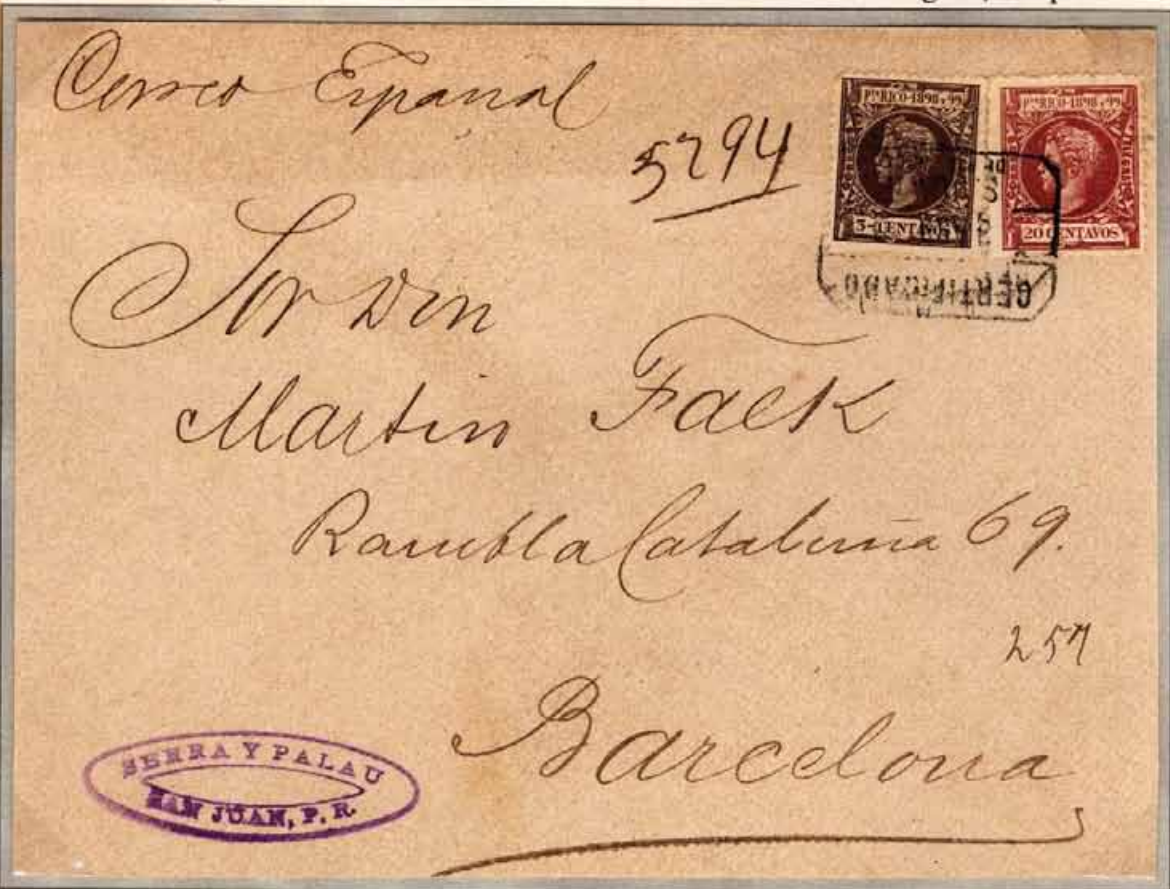 Correo Español
5294
Pto RICO-1898 y 99
3 CENTAVOS
Pto RICO-1898 y 99
20 CENTAVOS
CERTIFICADO
Sor Don
Martin Faek
Rambla Cataluña 69.
257
Barcelona
SERRA Y PALAU
SAN JUAN, P. R.